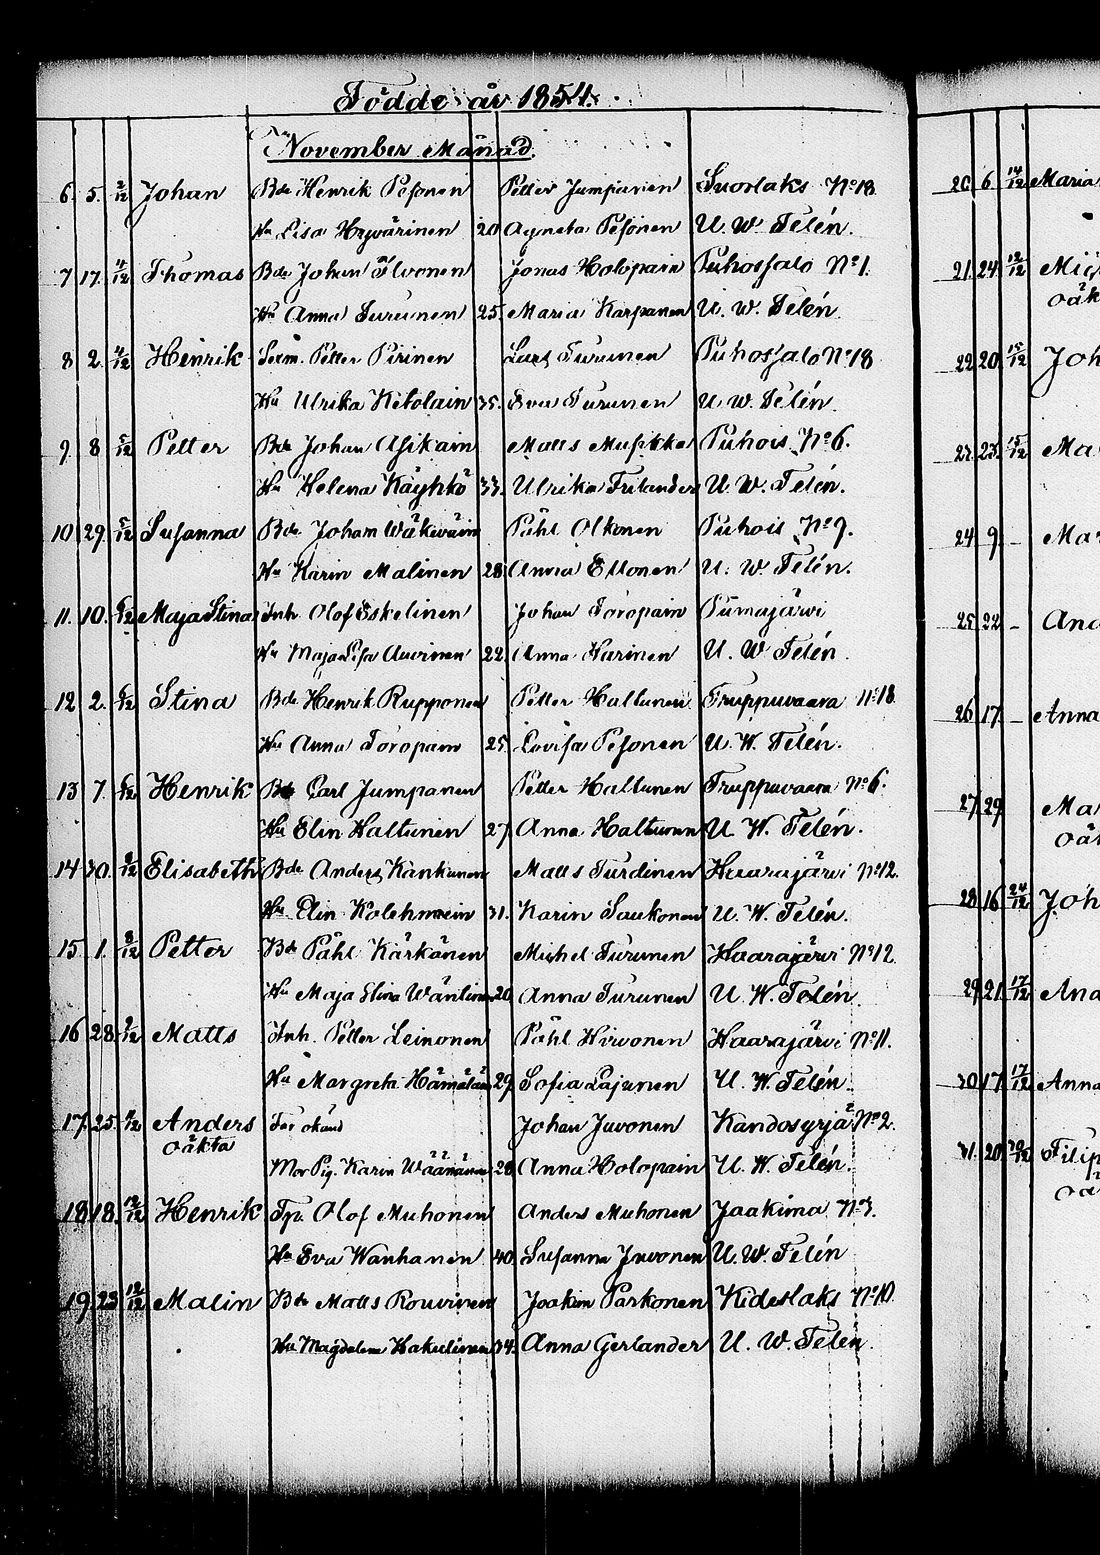 Födde år 1854.
November Månad.
6 5 2/12 Johan Bde Henrik Pesonen Petter Jumpanen Suorlaks No 18
Hu Lisa Hyvärinen 20 Agneta Pesonen U. W. Telén.
7 17. 4/12 Thomas Bde Johan Ilvonen Jonas Holopain Puhossalo No 1.
Hu Anna Turunen 25. Maria Karpanen U. W. Telén.
8 2. 4/12 Henrik Petter Pirinen Lars Turunen Puhossalo No 18
Hu Ulrika Kitolain 35. Eva Turunen U. W. Telén.
9 8 5/12 Petter Bde Johan Asikain Matts Musikka Puhois No 6.
Hu Helena Käyhkö 33. Ulrika Frilander U. W. Telén.
10 29. 5/12 Susanna Bde Johan Wäkeväin Påhl Olkonen Puhois No 9.
Hu Karin Malinen 28 Anna Ettonen U. W. Telén.
11. 10. 6/12 Maja Stina Inh. Olof Eskelinen Johan Toropain Pumajärvi
Hu Maja Lisa Auvinen 22. Anna Karinen U. W Telén.
12 2. 6/12 Stina Bde Henrik Rupponen Petter Haltunen Truppuvaara No 18
Hu Anna Toropain 25. Lovisa Pesonen U. W. Telén.
13 7. 6/12 Henrik Bde Carl Jumpanen Petter Haltunen Truppuvaara No 6.
Hu Elin Haltunen 27. Anna Haltunen U. W. Telén.
14 30. 8/12 Elisabeth Bde Anders Kankunen Matts Turdinen Haarajärvi No 12.
Hu Elin Kolehmain 31. Karin Saukonen U. W. Telén.
15 1. 8/12 Petter Bde Påhl Kärkänen Michel Turunen Haarajärvi No 12
Hu Maja Stina Wänlinen 20. Anna Turunen U. W. Telén.
16 28. 9/12 Matts Inh. Petter Leinonen Påhl Hirvonen Haarajärvi No 11.
Hu Margreta Hämäläin 29. Sofia Lajunen U. W. Telén.
17. 25. 9/12 Anders Far okänd Johan Juvonen Kandosyrjä No 2.
oäkta
Mor Pig. Karin Wäänänen 28 Anna Holopain U. W. Telén.
18 18. 12/12 Henrik Tp. Olof Muhonen Anders Muhonen Jaakima No 3.
Hu Eva Wanhanen 40. Susanna Juvonen U. W. Telén
19. 23. 12/12 Malin Bde Matts Rouvinen Joakim Parkonen Kideslaks No 10.
Hu Magdalena Hakulinen 34. Anna Gerlander U. W. Telén.
20. 6. 14/12 Maria
21. 24. 12/12
oäk
22. 20. 15/12 Joh
23. 15/12 Ma
24 9. – Mar
25 22 – And
26 17. – Anna
27. 29. Ma
oäk
28 16 24/12 Joh
29. 21. 17/12 And
30 17. 17/12 Anna
31. 20. Filip